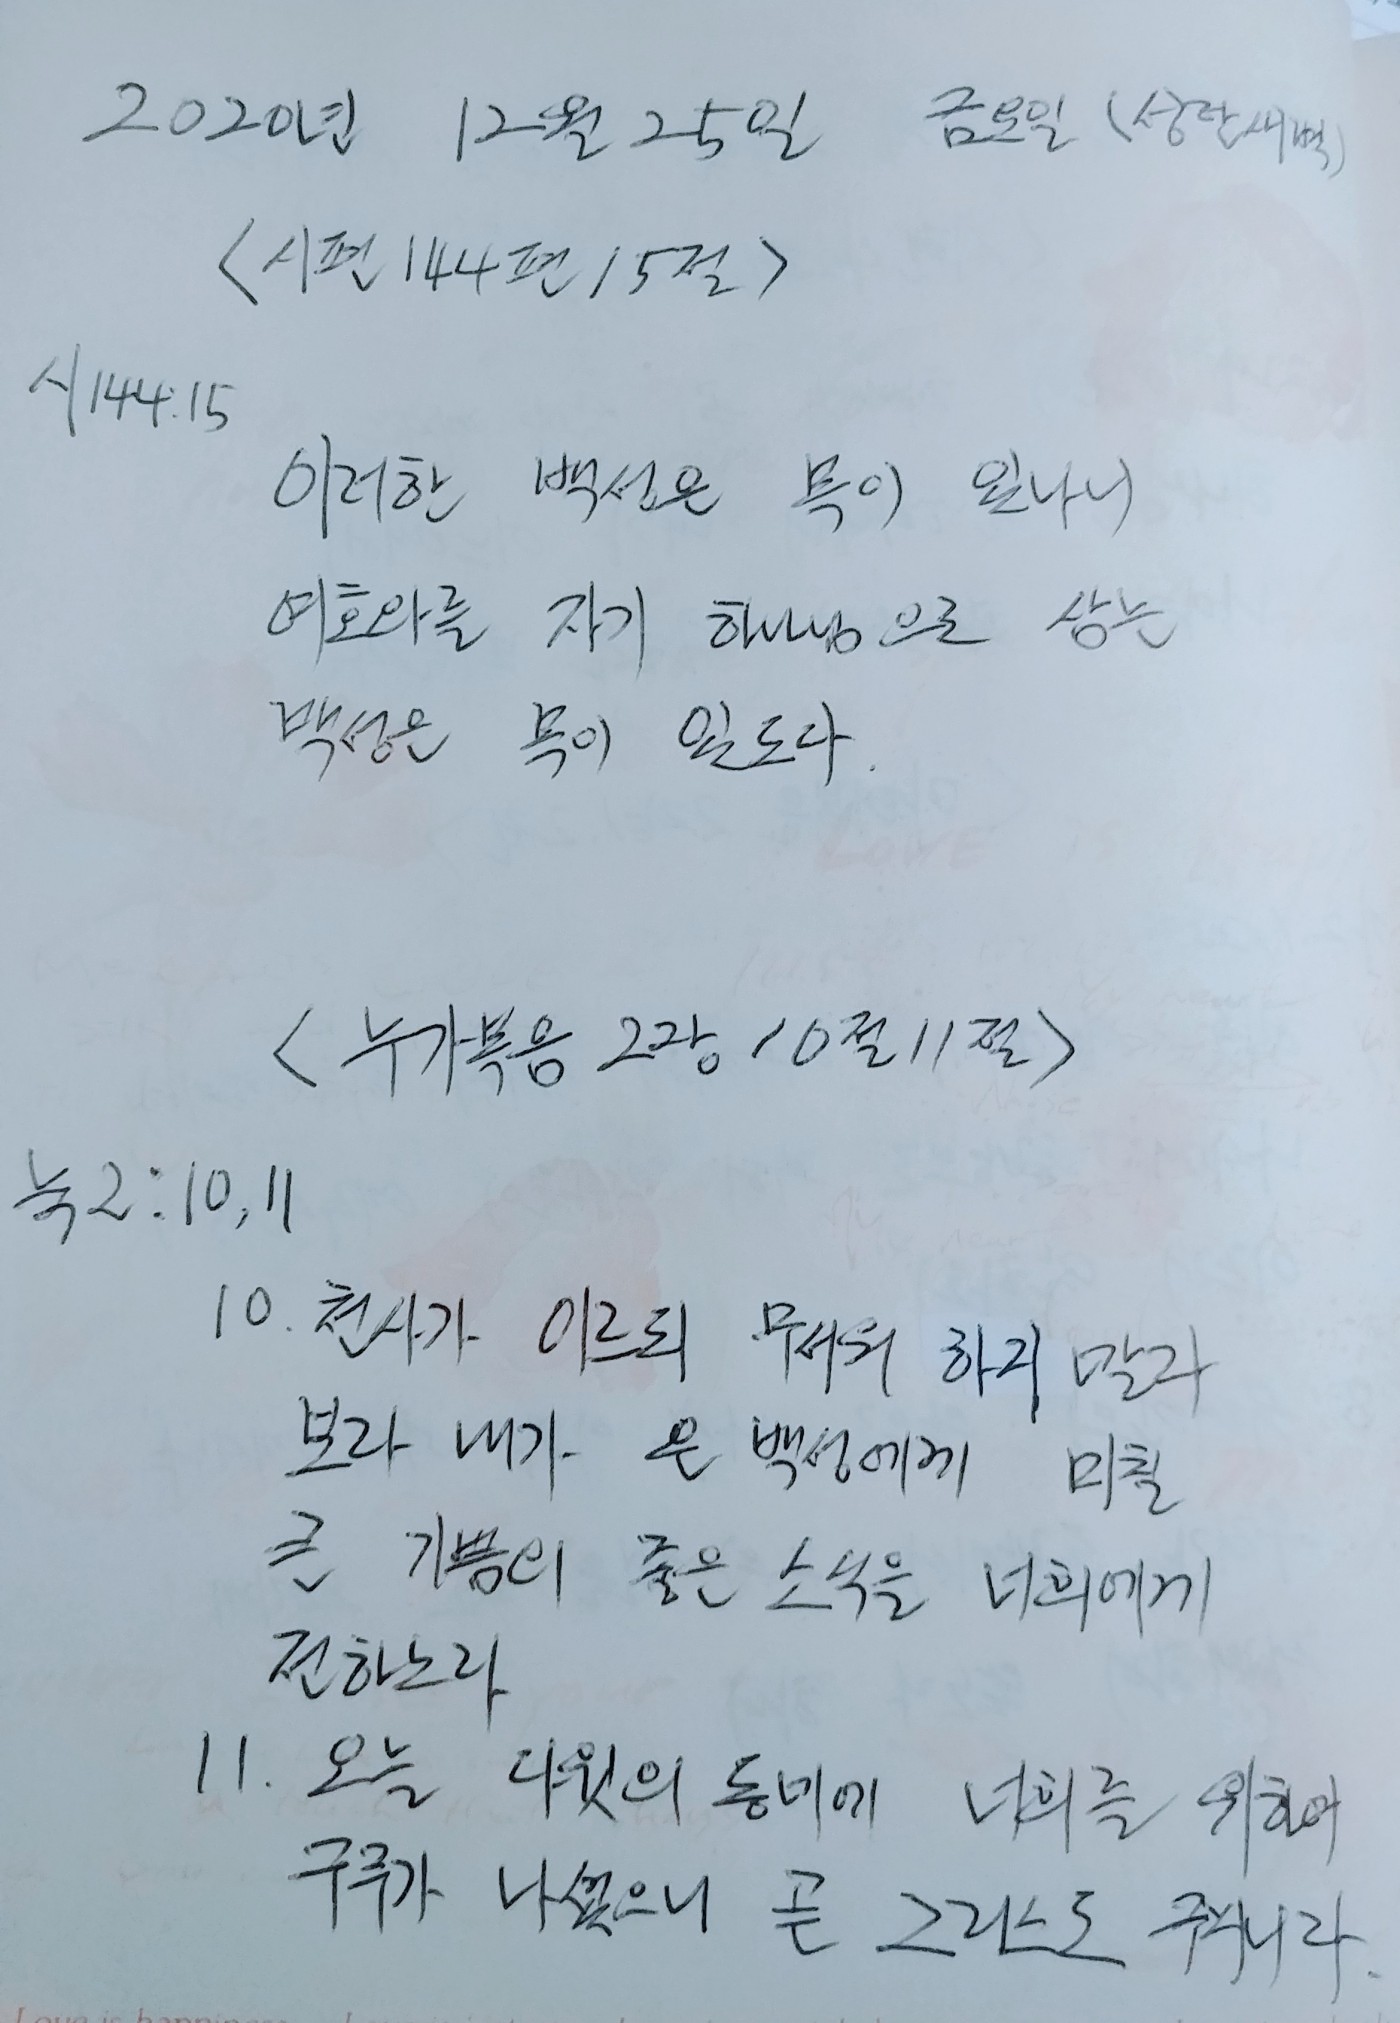 2020년 12월 25일 금요일 (성탄새벽)
<시편 144편 15절>
시144:15
이러한 백성은 복이 있나니
여호와를 자기 하나님으로 삼는
백성은 복이 있도다.
<누가복음 2장 10절 11절>
눅2:10,11
10. 천사가 이르되 무서워 하지 말라
보라 내가 온 백성에게 미칠
큰 기쁨의 좋은 소식을 너희에게
전하노라
11. 오늘 다윗의 동네에 너희를 위하여
구주가 나셨으니 곧 그리스도 주시니라.
Love is happiness